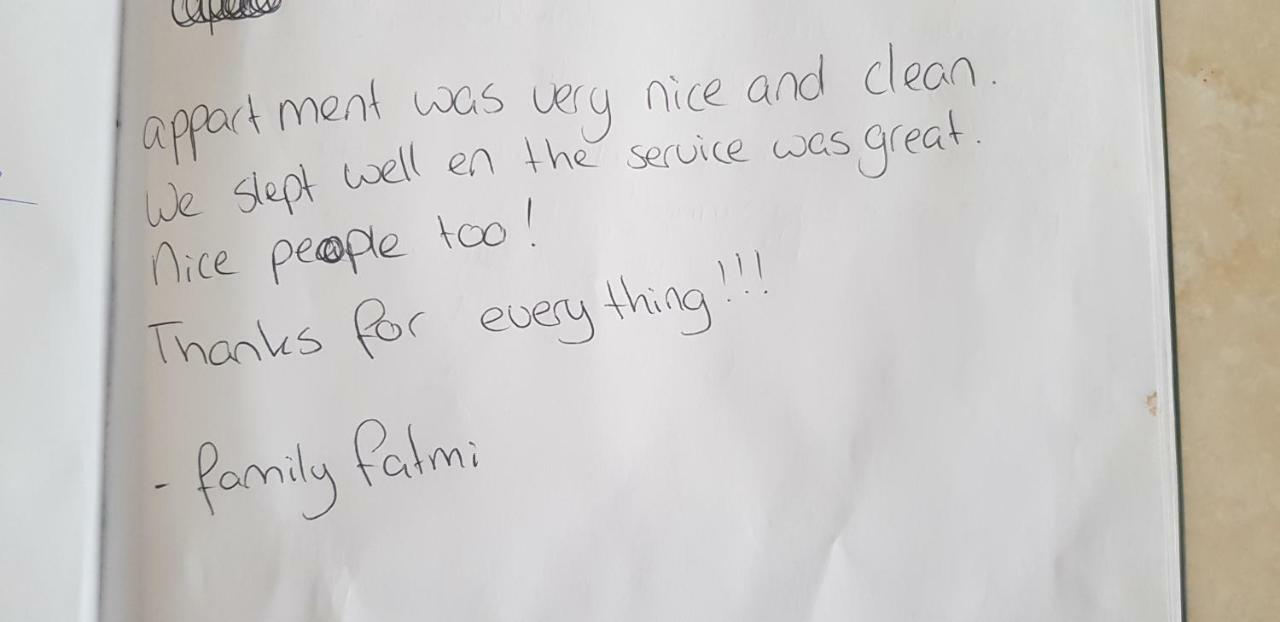 appartment was very nice and clean.
We slept well en the service was great.
Nice people too!
Thanks for everything!!!
- family Fatmi